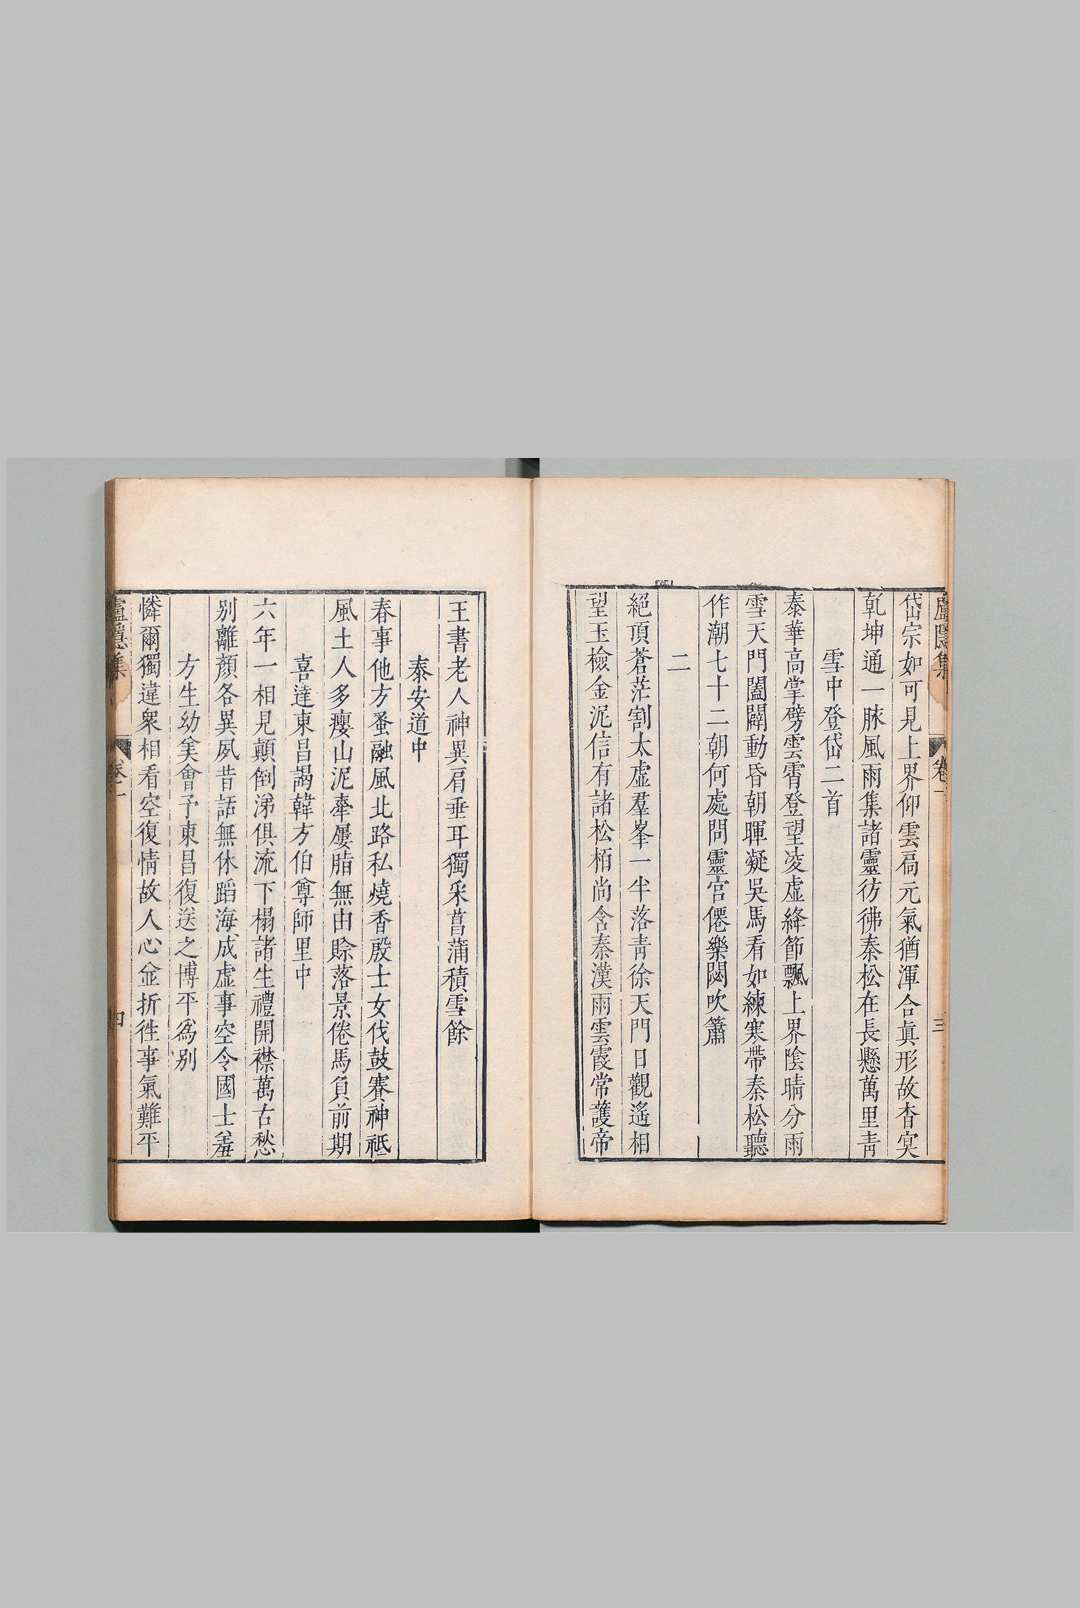 岱宗如可見上界仰雲扃元氣猶渾合真形故杳冥
乾坤通一脉風雨集諸靈彷彿秦松在長懸萬里青
雪中登岱二首
泰華高掌劈雲霄登望凌虛絳節飄上界陰晴分雨
雪天門闔闢動昏朝暉凝吳馬看如練寒帶秦松聽
作潮七十二朝何處問靈宮僊樂闋吹簫
二
絕頂蒼茫割太虛羣峯一半落靑徐天門日觀遙相
望玉檢金泥信有諸松栢尚含秦漢雨雲霞常護帝
王書老人神異肩垂耳獨采菖蒲積雪餘
泰安道中
春事他方蚤融風北路私燒香殷士女伐鼓賽神祗
風土人多癭山泥牽屨脂無由賒落景倦馬負前期
喜達東昌謁韓方伯尊師里中
六年一相見顛倒涕俱流下榻諸生禮開襟萬古愁
別離顏各異夙昔話無休蹈海成虛事空令國士羞
方生幼奚會予東昌復送之博平爲别
憐爾獨違衆相看空復情故人心並折徃事氣難平
隱集
卷一
三
四